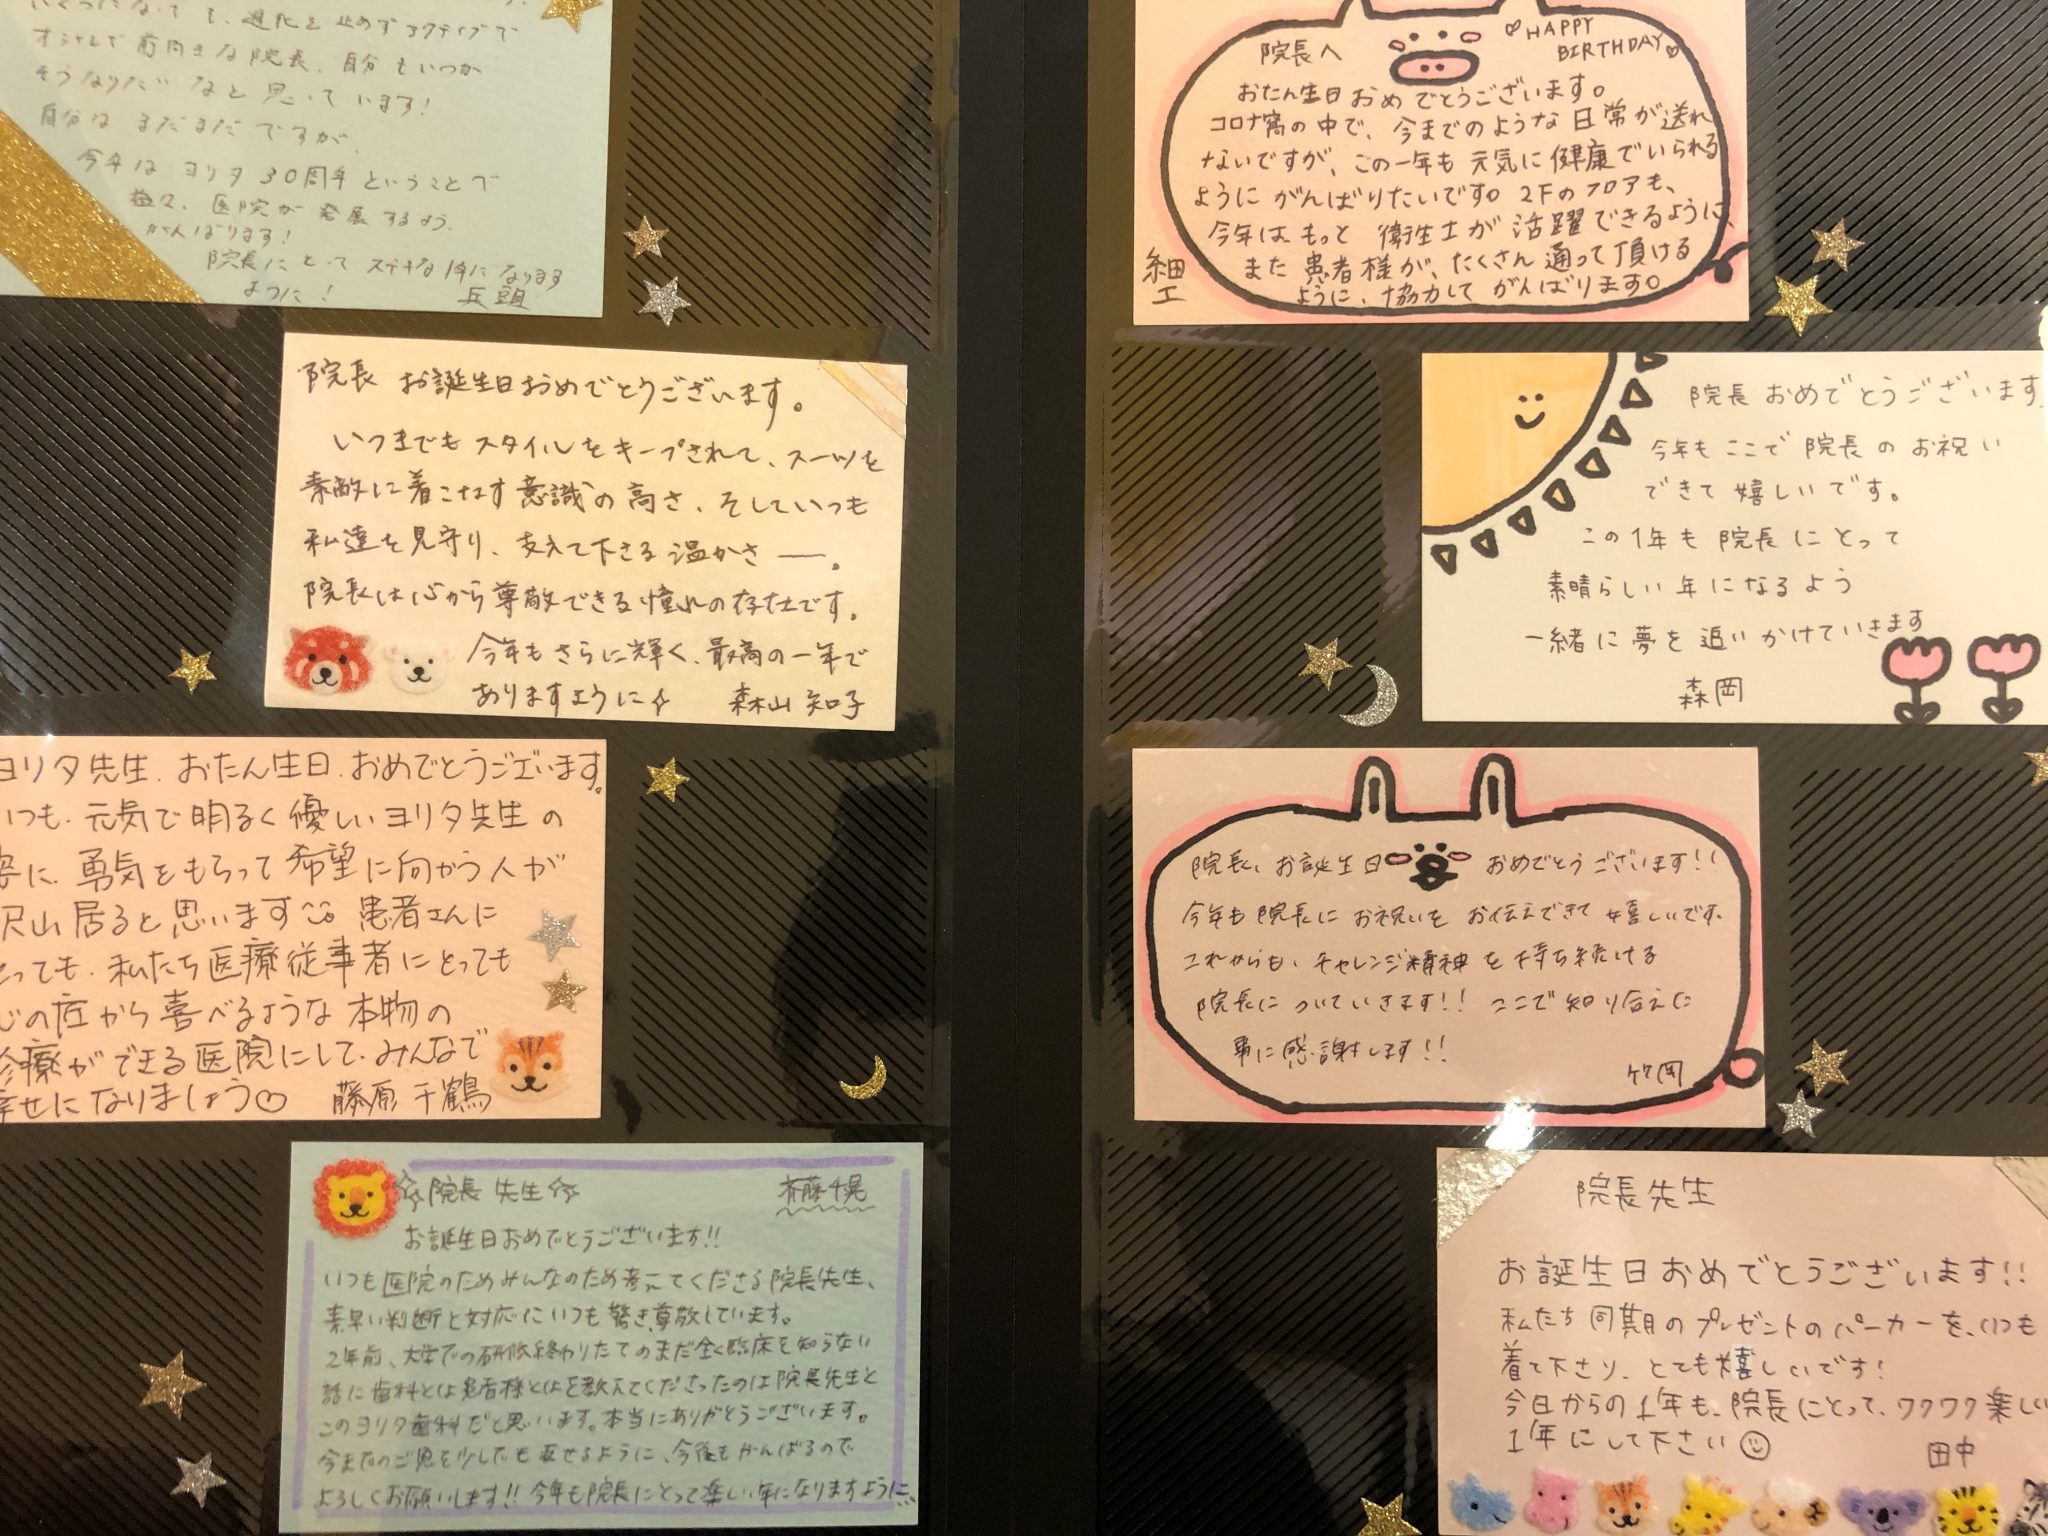 いくつになっても、進化を止めずアクティブで
オシャレで前向きな院長、自分もいつか
そうなりたいなと思っています!
自分はまだまだですが、
今年はヨリタ30周年ということで
益々、医院が発展するよう、
がんばります!
院長にとってステキな1年になります
ように!
兵頭
院長 お誕生日おめでとうございます。
いつまでもスタイルをキープされて、スーツを
素敵に着こなす意識の高さ、そしていつも
私達を見守り、支えて下さる温かさ―。
院長は心から尊敬できる憧れの存在です。
今年もさらに輝く、最高の一年で
ありますように
森山 知子
ヨリタ先生.おたん生日.おめでとうございます。
いつも.元気で明るく優しいヨリタ先生の
姿に.勇気をもらって希望に向かう人が
沢山居ると思います 患者さんに
とっても.私たち医療従事者にとっても
心の底から喜べるような本物の
診療ができる医院にして.みんなで
幸せになりましょう♡
藤原 千鶴
☆院長先生☆
斉藤千晃
お誕生日おめでとうございます!!
いつも医院のためみんなのため考えてくださる院長先生、
素早い判断と対応にいつも驚き尊敬しています。
2年前、大学での研修終わりたてのまだ全く臨床を知らない
話に歯科とは患者様とはを教えてくださったのは院長先生と
このヨリタ歯科だと思います。本当にありがとうございます。
今までのご恩を少しでも返せるように、今後もがんばるので
よろしくお願いします!! 今年も院長にとって楽しい年になりますように、
院長へ
♡HAPPY
BIRTHDAY♡
おたん生日おめでとうございます。
コロナ禍の中で、今までのような日常が送れ
ないですが、この一年も元気に健康でいられる
ようにがんばりたいです。2Fのフロアも、
今年は、もっと衛生士が活躍できるように、
また患者様が、たくさん通って頂ける
ように、協力してがんばります。
細工
院長おめでとうございます。
今年もここで院長のお祝い
できて嬉しいです。
この1年も院長にとって
素晴らしい年になるよう
一緒に夢を追いかけていきます
森岡
院長、お誕生日 おめでとうございます!!
今年も院長にお祝いをお伝えできて嬉しいです。
これからも、チャレンジ精神を持ち続ける
院長についていきます!! ここで知り合えた
事に感謝します!!
竹岡
院長先生
お誕生日おめでとうございます!!
私たち同期のプレゼントのパーカーを、いつも
着て下さり、とても嬉しいです!
今日からの1年も、院長にとって、ワクワク楽しい
1年にして下さい
田中